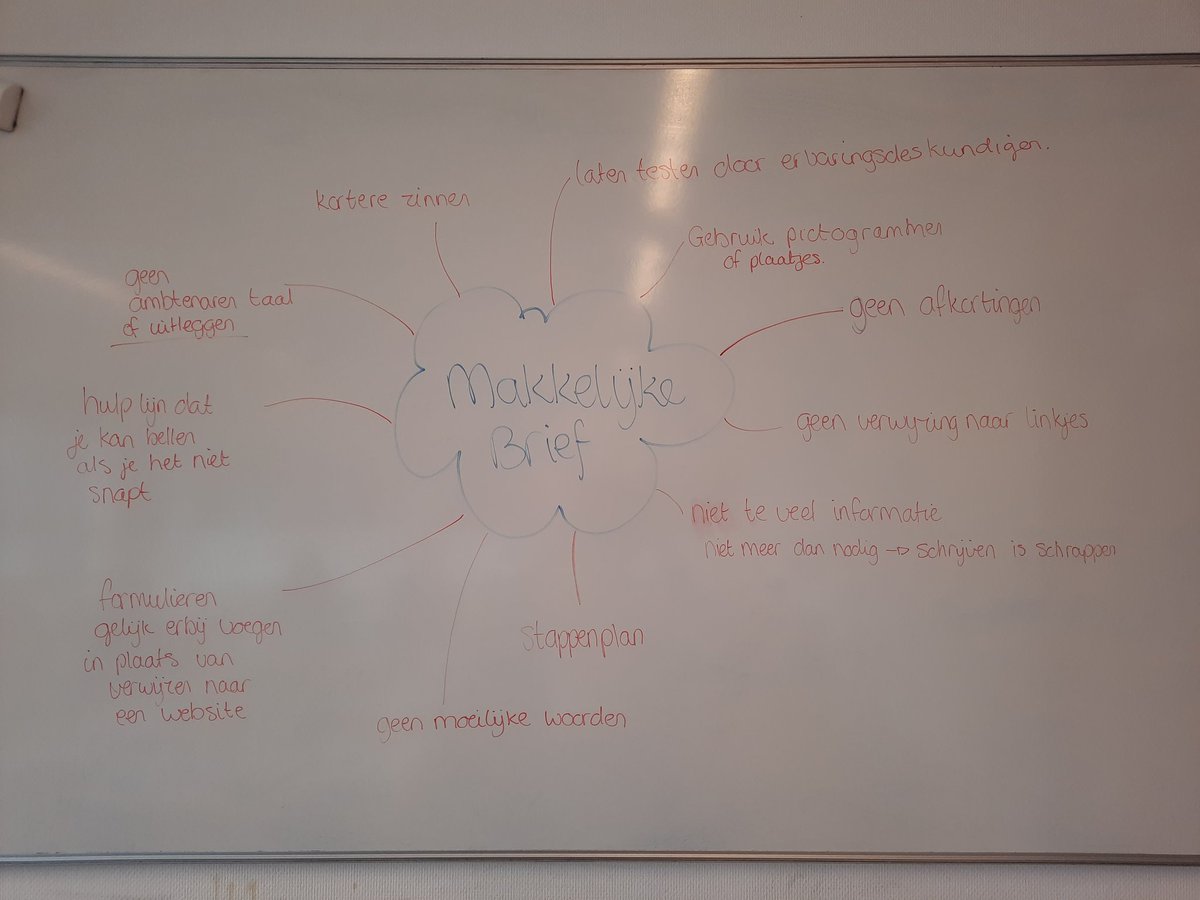 Makkelijke
Brief
laten testen door ervaringsdeskundigen.
Gebruik pictogrammen
of plaatjes.
geen afkortingen
geen verwijzing naar linkjes
niet te veel informatie
niet meer dan nodig → schrijven is schrappen
stappenplan
geen moeilijke woorden
formulieren
gelijk erbij voegen
in plaats van
verwijzen naar
een website
hulp lijn dat
je kan bellen
als je het niet
snapt
geen
ambtenaren taal
of uitleggen
kortere zinnen